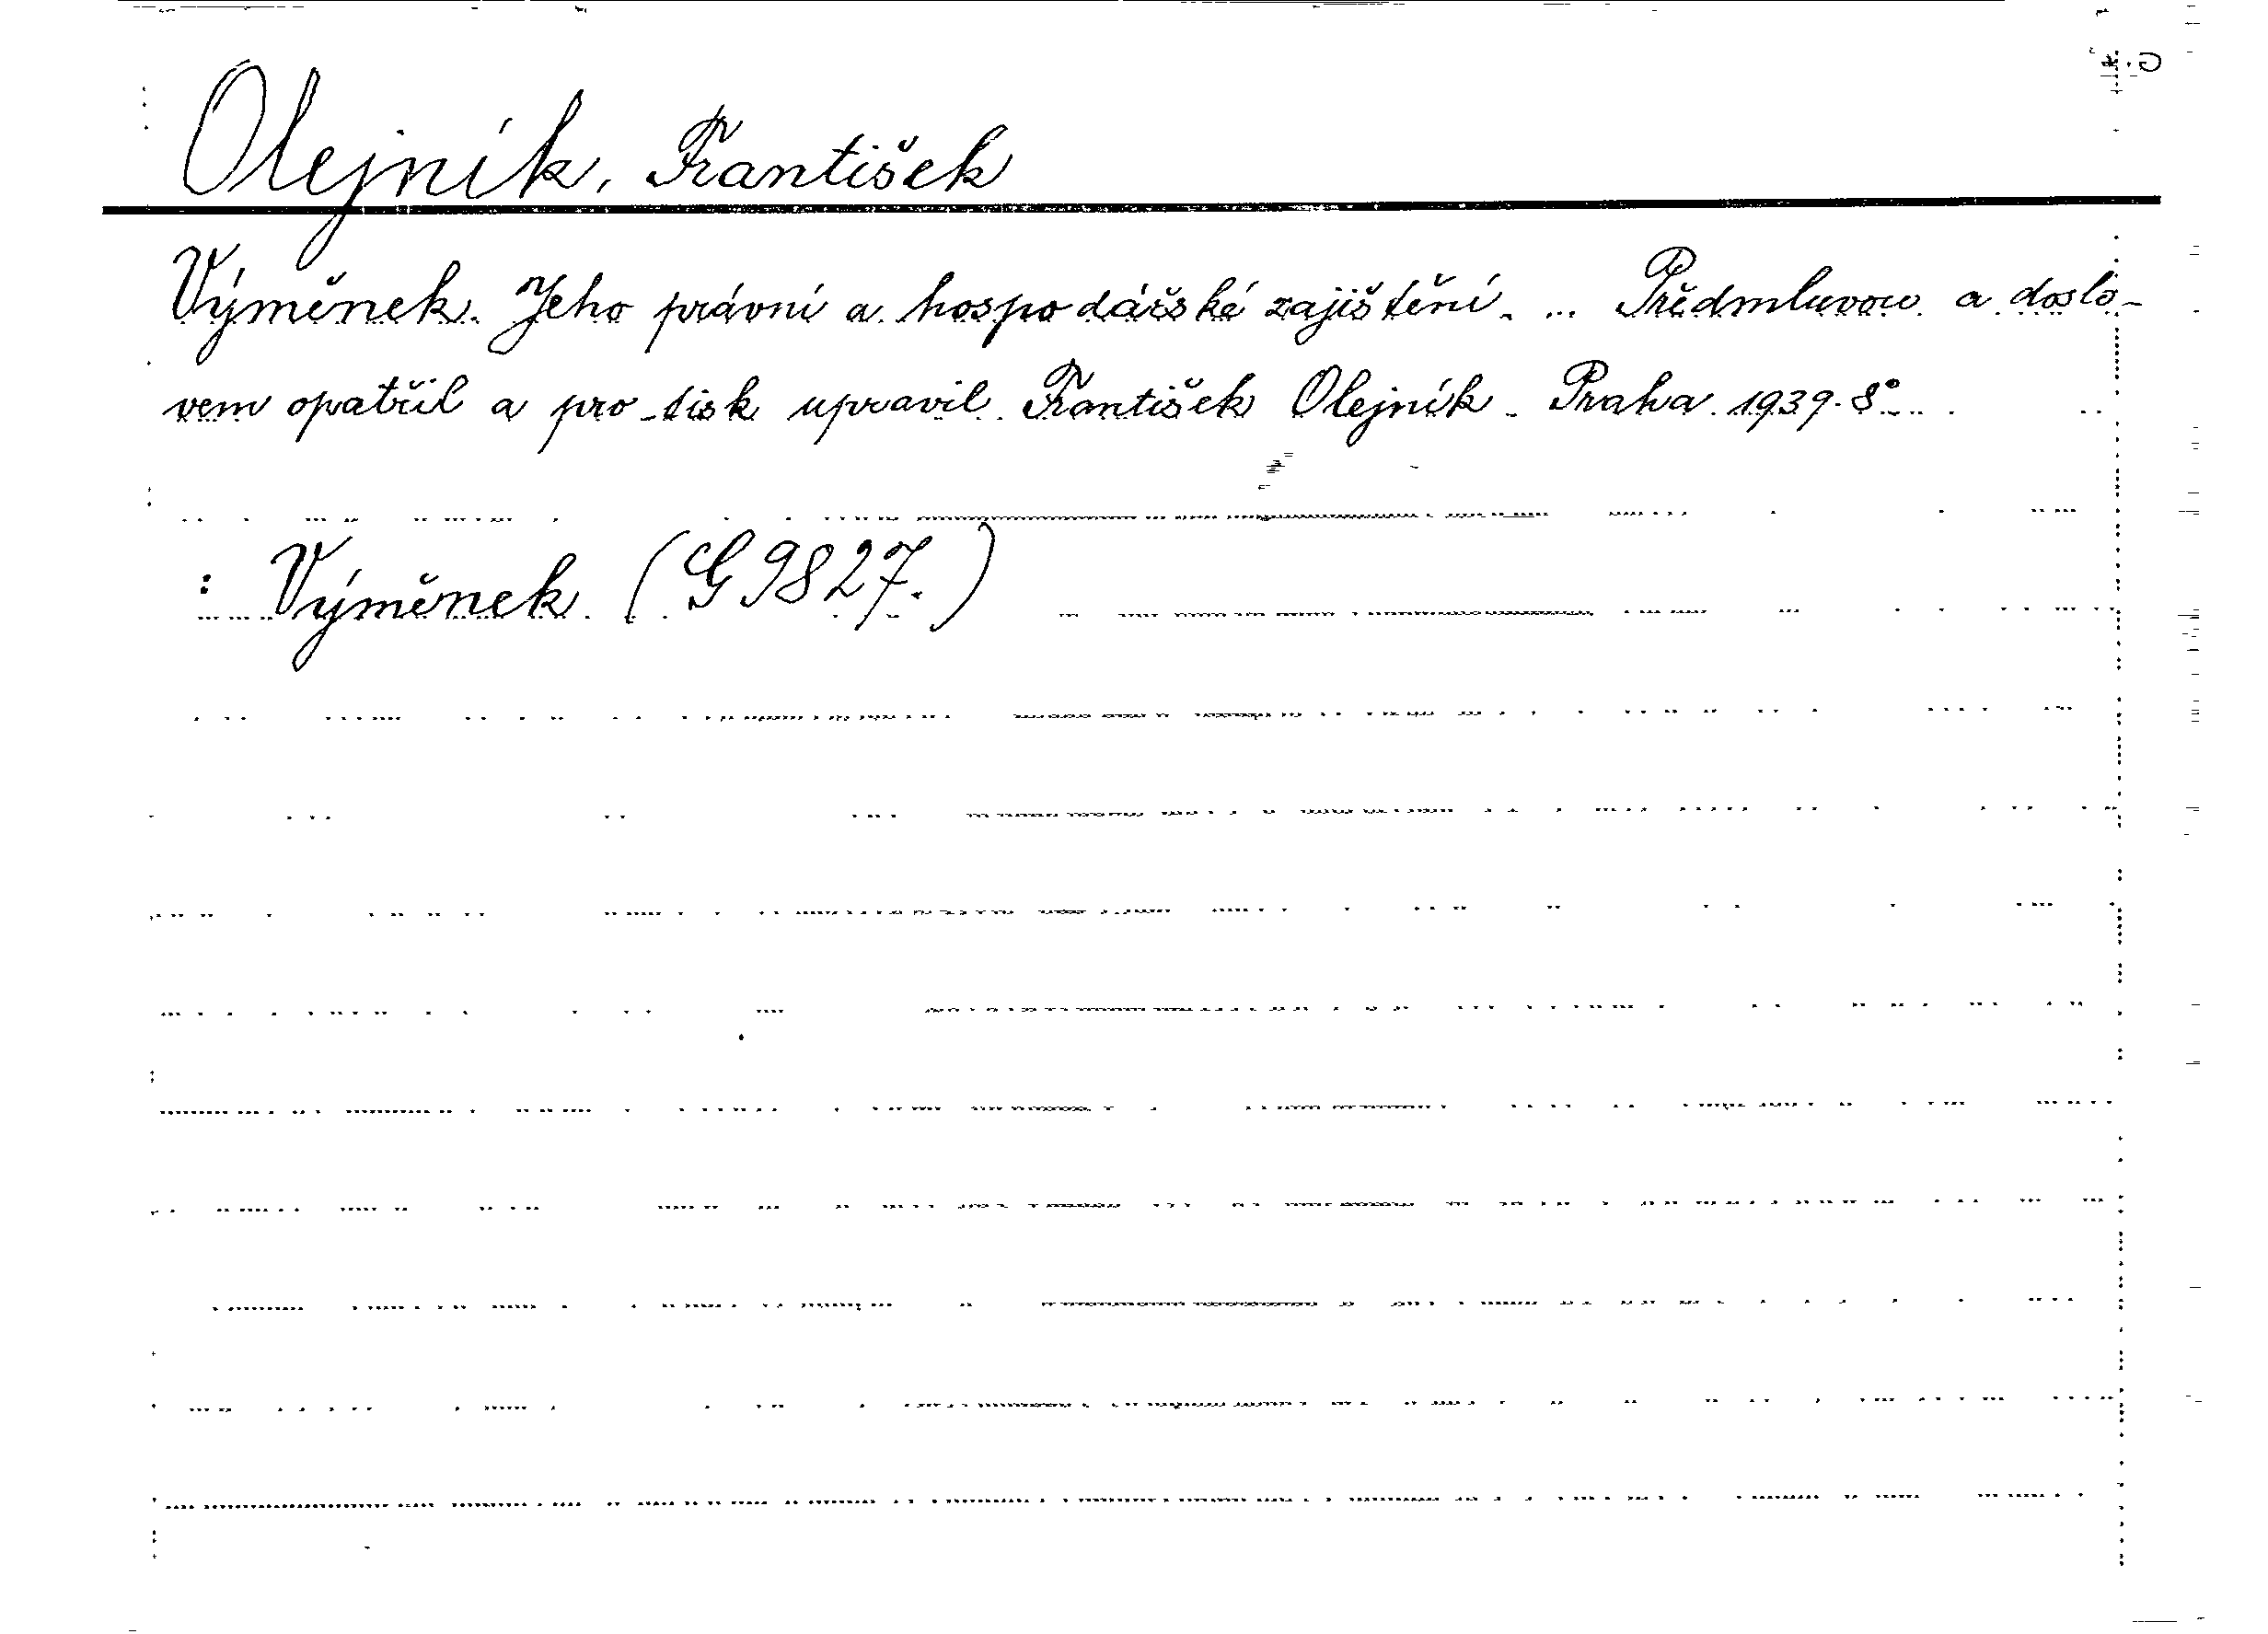 Olejník, František
Výměnek. Jeho právní a hospodářské zajištění. ... Předmluvou a doslo-
vem opatřil a pro tisk upravil František Olejník. Praha 1939. 8°
: Výměnek (G 9827.)